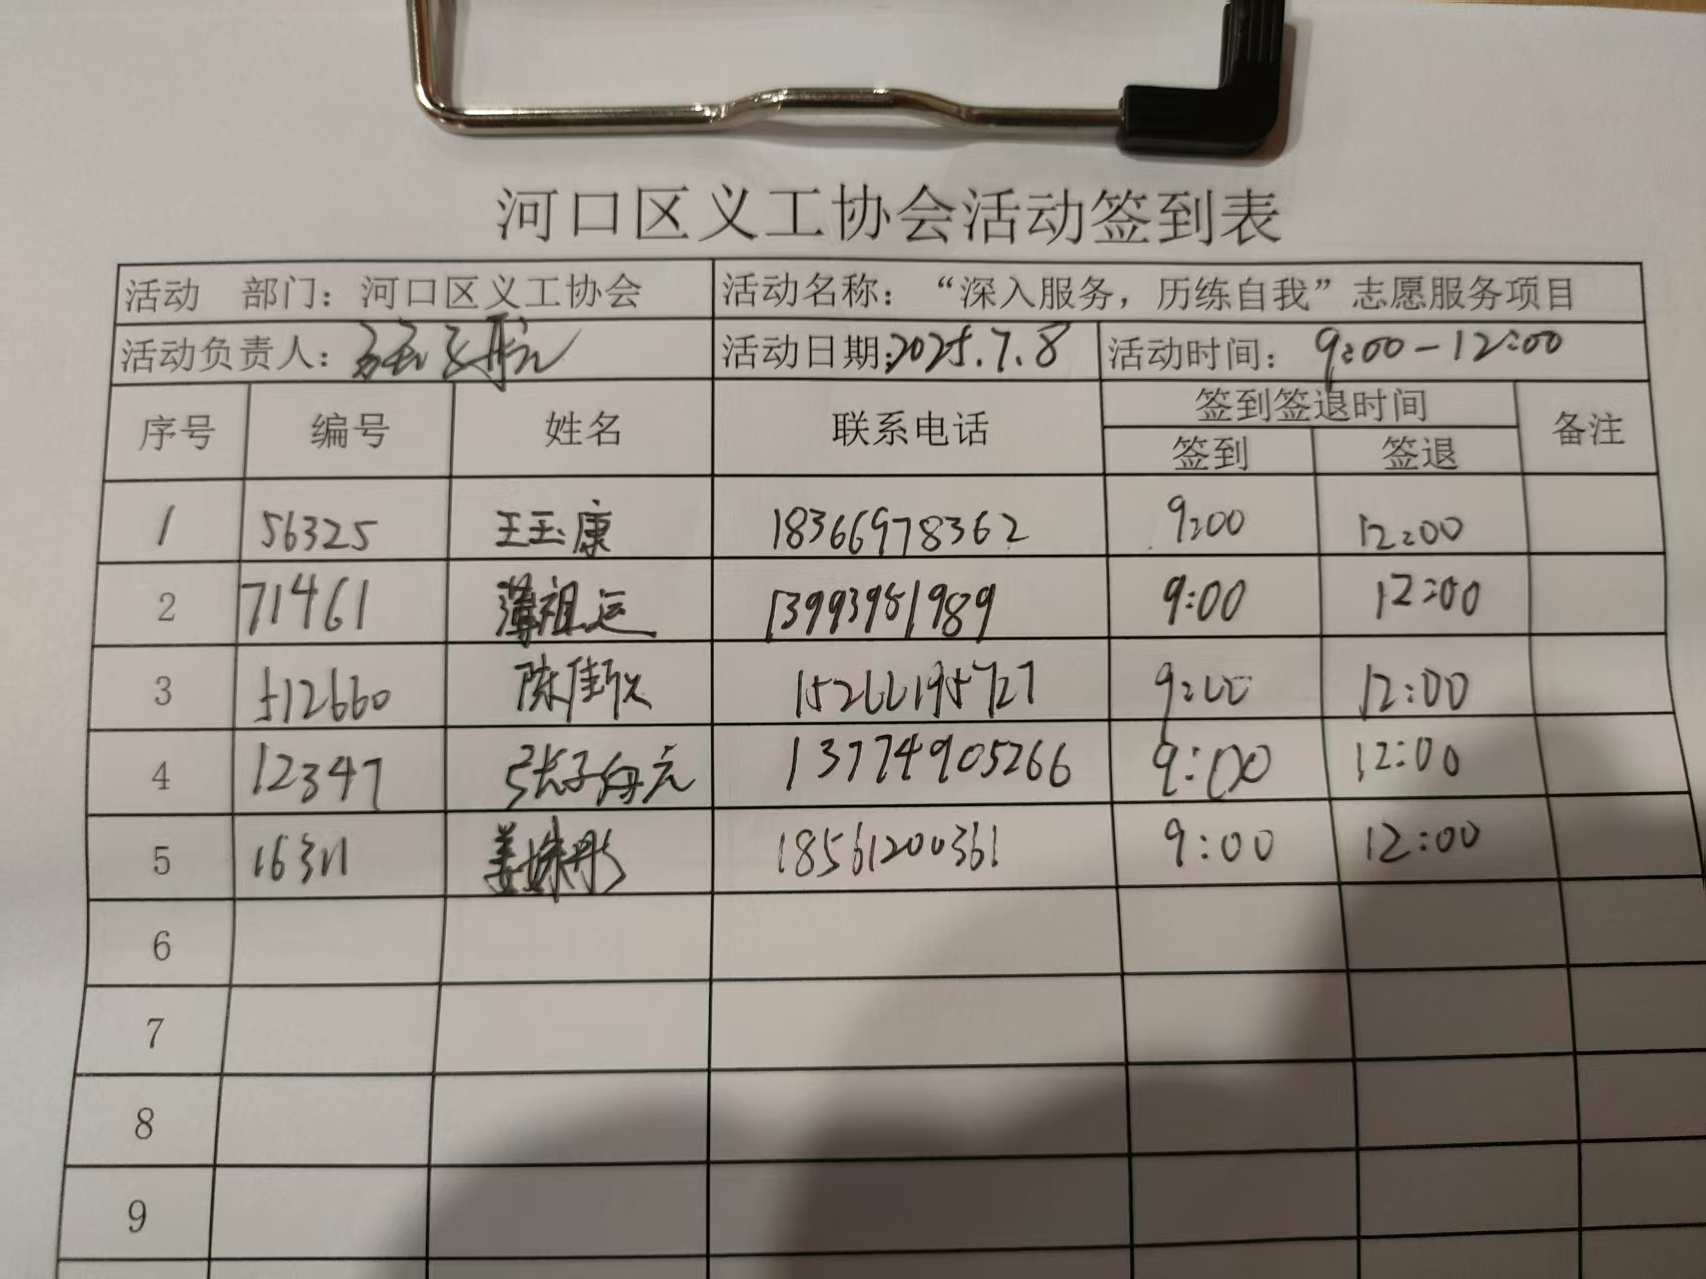 河口区义工协会活动签到表
活动 部门：河口区义工协会 活动名称：“深入服务，历练自我”志愿服务项目
活动负责人： 活动日期：2025.7.8 活动时间：9:00-12:00
序号 编号 姓名 联系电话 签到签退时间 备注
签到 签退
1 56325 王玉康 18366978362 9:00 12:00
2 71461 薄祖运 13993951989 9:00 12:00
3 512660 陈 15266195727 9:00 12:00
4 12347 张子 13774905266 9:00 12:00
5 16311 姜姝彤 18561200361 9:00 12:00
6
7
8
9